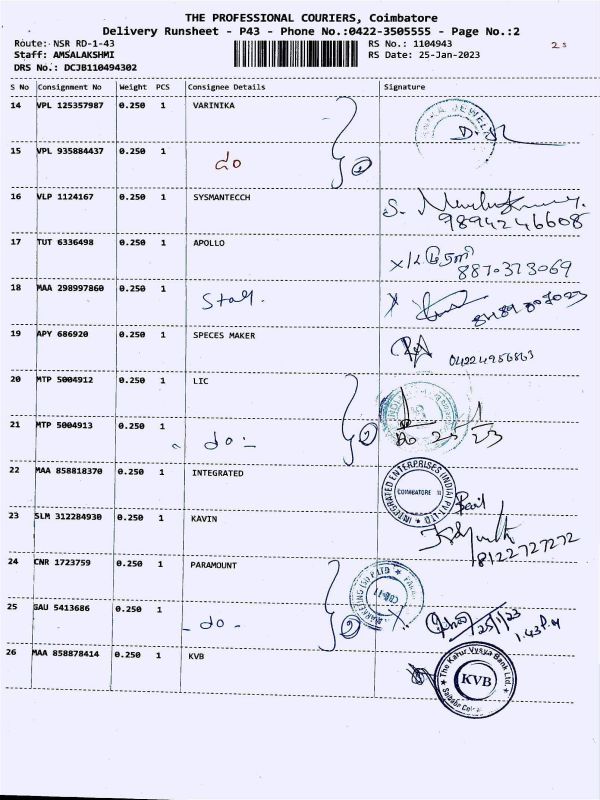 THE PROFESSIONAL COURIERS, Coimbatore
Delivery Runsheet - P43 - Phone No.:0422-3505555 - Page No.:2
Route: NSR RD-1-43
RS No.: 1104943
Staff: AMSALAKSHMI
RS Date: 25-Jan-2023
DRS No.: DCJB110494302
S No Consignment No Weight PCS Consignee Details Signature
14 VPL 125357987 0.250 1 VARINIKA
15 VPL 935884437 0.250 1
do 2
16 VLP 1124167 0.250 1 SYSMANTECCH
9894246608
17 TUT 6336498 0.250 1 APOLLO
8870373069
18 MAA 298997860 0.250 1
19 APY 686920 0.250 1 SPECES MAKER
04224956863
20 MTP 5004912 0.250 1 LIC
21 MTP 5004913 0.250 1
do 2
22 MAA 858818370 0.250 1 INTEGRATED
INTEGRATED ENTERPRISES (INDIA) PVT. LTD
COIMBATORE
23 SLM 312284930 0.250 1 KAVIN
8122727272
24 CNR 1723759 0.250 1 PARAMOUNT
25 GAU 5413686 0.250 1
do 2
25/1/23
1.43 P.M
26 MAA 858878414 0.250 1 KVB
The Karur Vysya Bank Ltd.
KVB